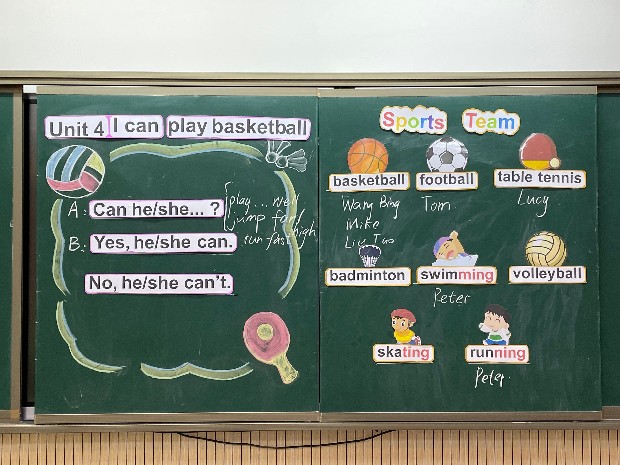 Unit 4 I can play basketball
A: Can he/she... ?
play... well
jump far/high
B: Yes, he/she can.
run fast
No, he/she can't.
Sports Team
basketball football table tennis
Wang Bing Tom Lucy
Mike
Liu Tao
badminton swimming volleyball
Peter
skating running
Peter